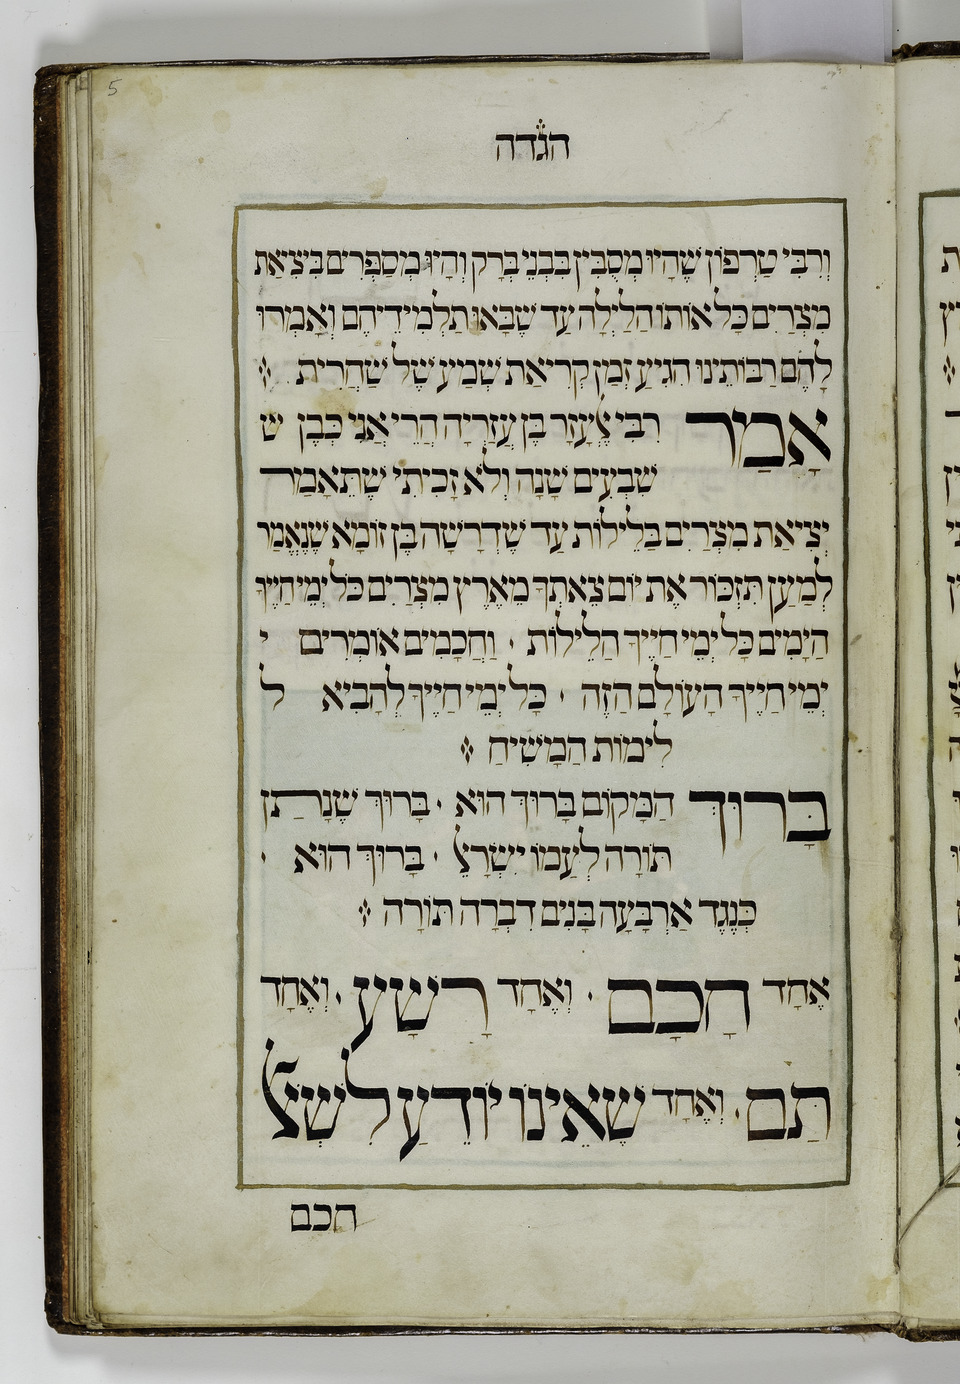 5
הגדה
וְרִבִּי טַרְפוֹן שֶׁהָיוּ מְסֻבִּין בִּבְנֵי בְּרָק וְהָיוּ מְסַפְּרִים בִּיצִיאַת
מִצְרַיִם כָּל אוֹתוֹ הַלַּיְלָה עַד שֶׁבָּאוּ תַלְמִידֵיהֶם וְאָמְרוּ
לָהֶם רַבּוֹתֵינוּ הִגִּיעַ זְמַן קְרִיאַת שְׁמַע שֶׁל שַׁחֲרִית
אָמַר רִבִּי אֶלְעָזָר בֶּן עֲזַרְיָה הֲרֵי אֲנִי כְּבֶן ש
שִׁבְעִים שָׁנָה וְלֹא זָכִיתִי שֶׁתֵּאָמֵר
יְצִיאַת מִצְרַיִם בַּלֵּילוֹת עַד שֶׁדְּרָשָׁהּ בֶּן זוֹמָא שֶׁנֶּאֱמַר
לְמַעַן תִּזְכּוֹר אֶת יוֹם צֵאתְךָ מֵאֶרֶץ מִצְרַיִם כֹּל יְמֵי חַיֶּיךָ
הַיָּמִים כָּל יְמֵי חַיֶּיךָ הַלֵּילוֹת · וַחֲכָמִים אוֹמְרִים י
יְמֵי חַיֶּיךָ הָעוֹלָם הַזֶּה · כָּל יְמֵי חַיֶּיךָ לְהָבִיא ל
לִימוֹת הַמָּשִׁיחַ
בָּרוּךְ הַמָּקוֹם בָּרוּךְ הוּא · בָּרוּךְ שֶׁנָּתַן
תּוֹרָה לְעַמּוֹ יִשְׂרָאֵל · בָּרוּךְ הוּא ·
כְּנֶגֶד אַרְבָּעָה בָנִים דִּבְּרָה תּוֹרָה
אֶחָד חָכָם · וְאֶחָד רָשָׁע · וְאֶחָד
תַּם · וְאֶחָד שֶׁאֵינוֹ יוֹדֵעַ לִשְׁאֹל
חכם